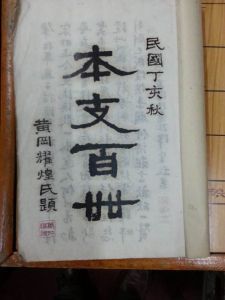 民國丁亥秋
本支百世
黃岡耀煌氏題